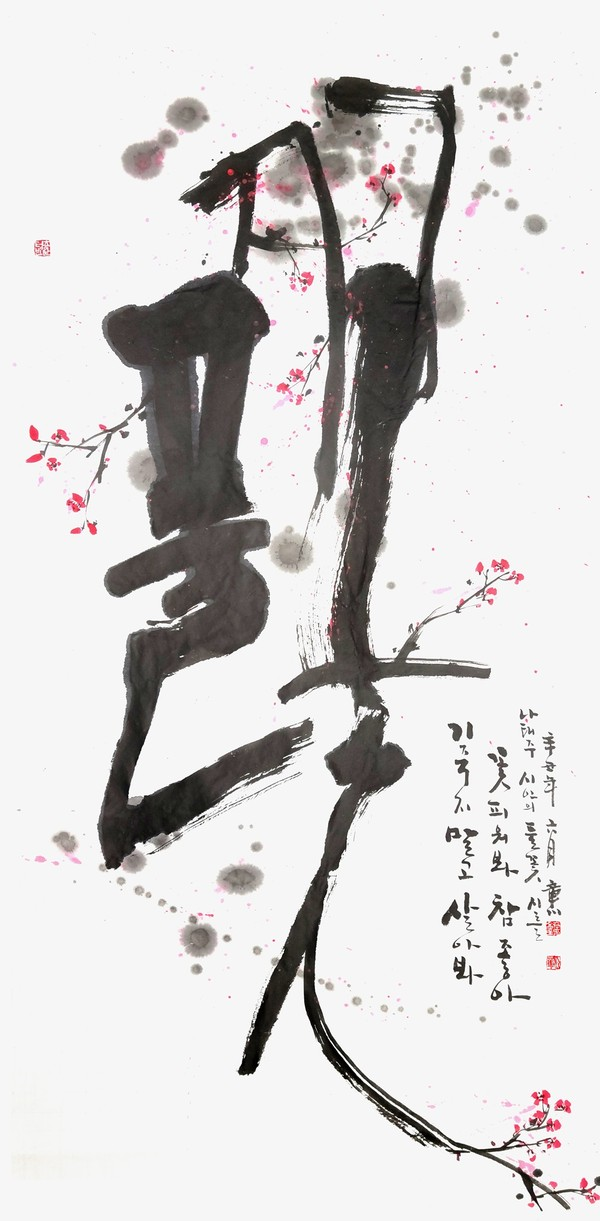 풀꽃
기죽지 말고 살아봐
꽃 피워봐 참 좋아
나태주 시인의 풀꽃 시를
辛丑年 六月